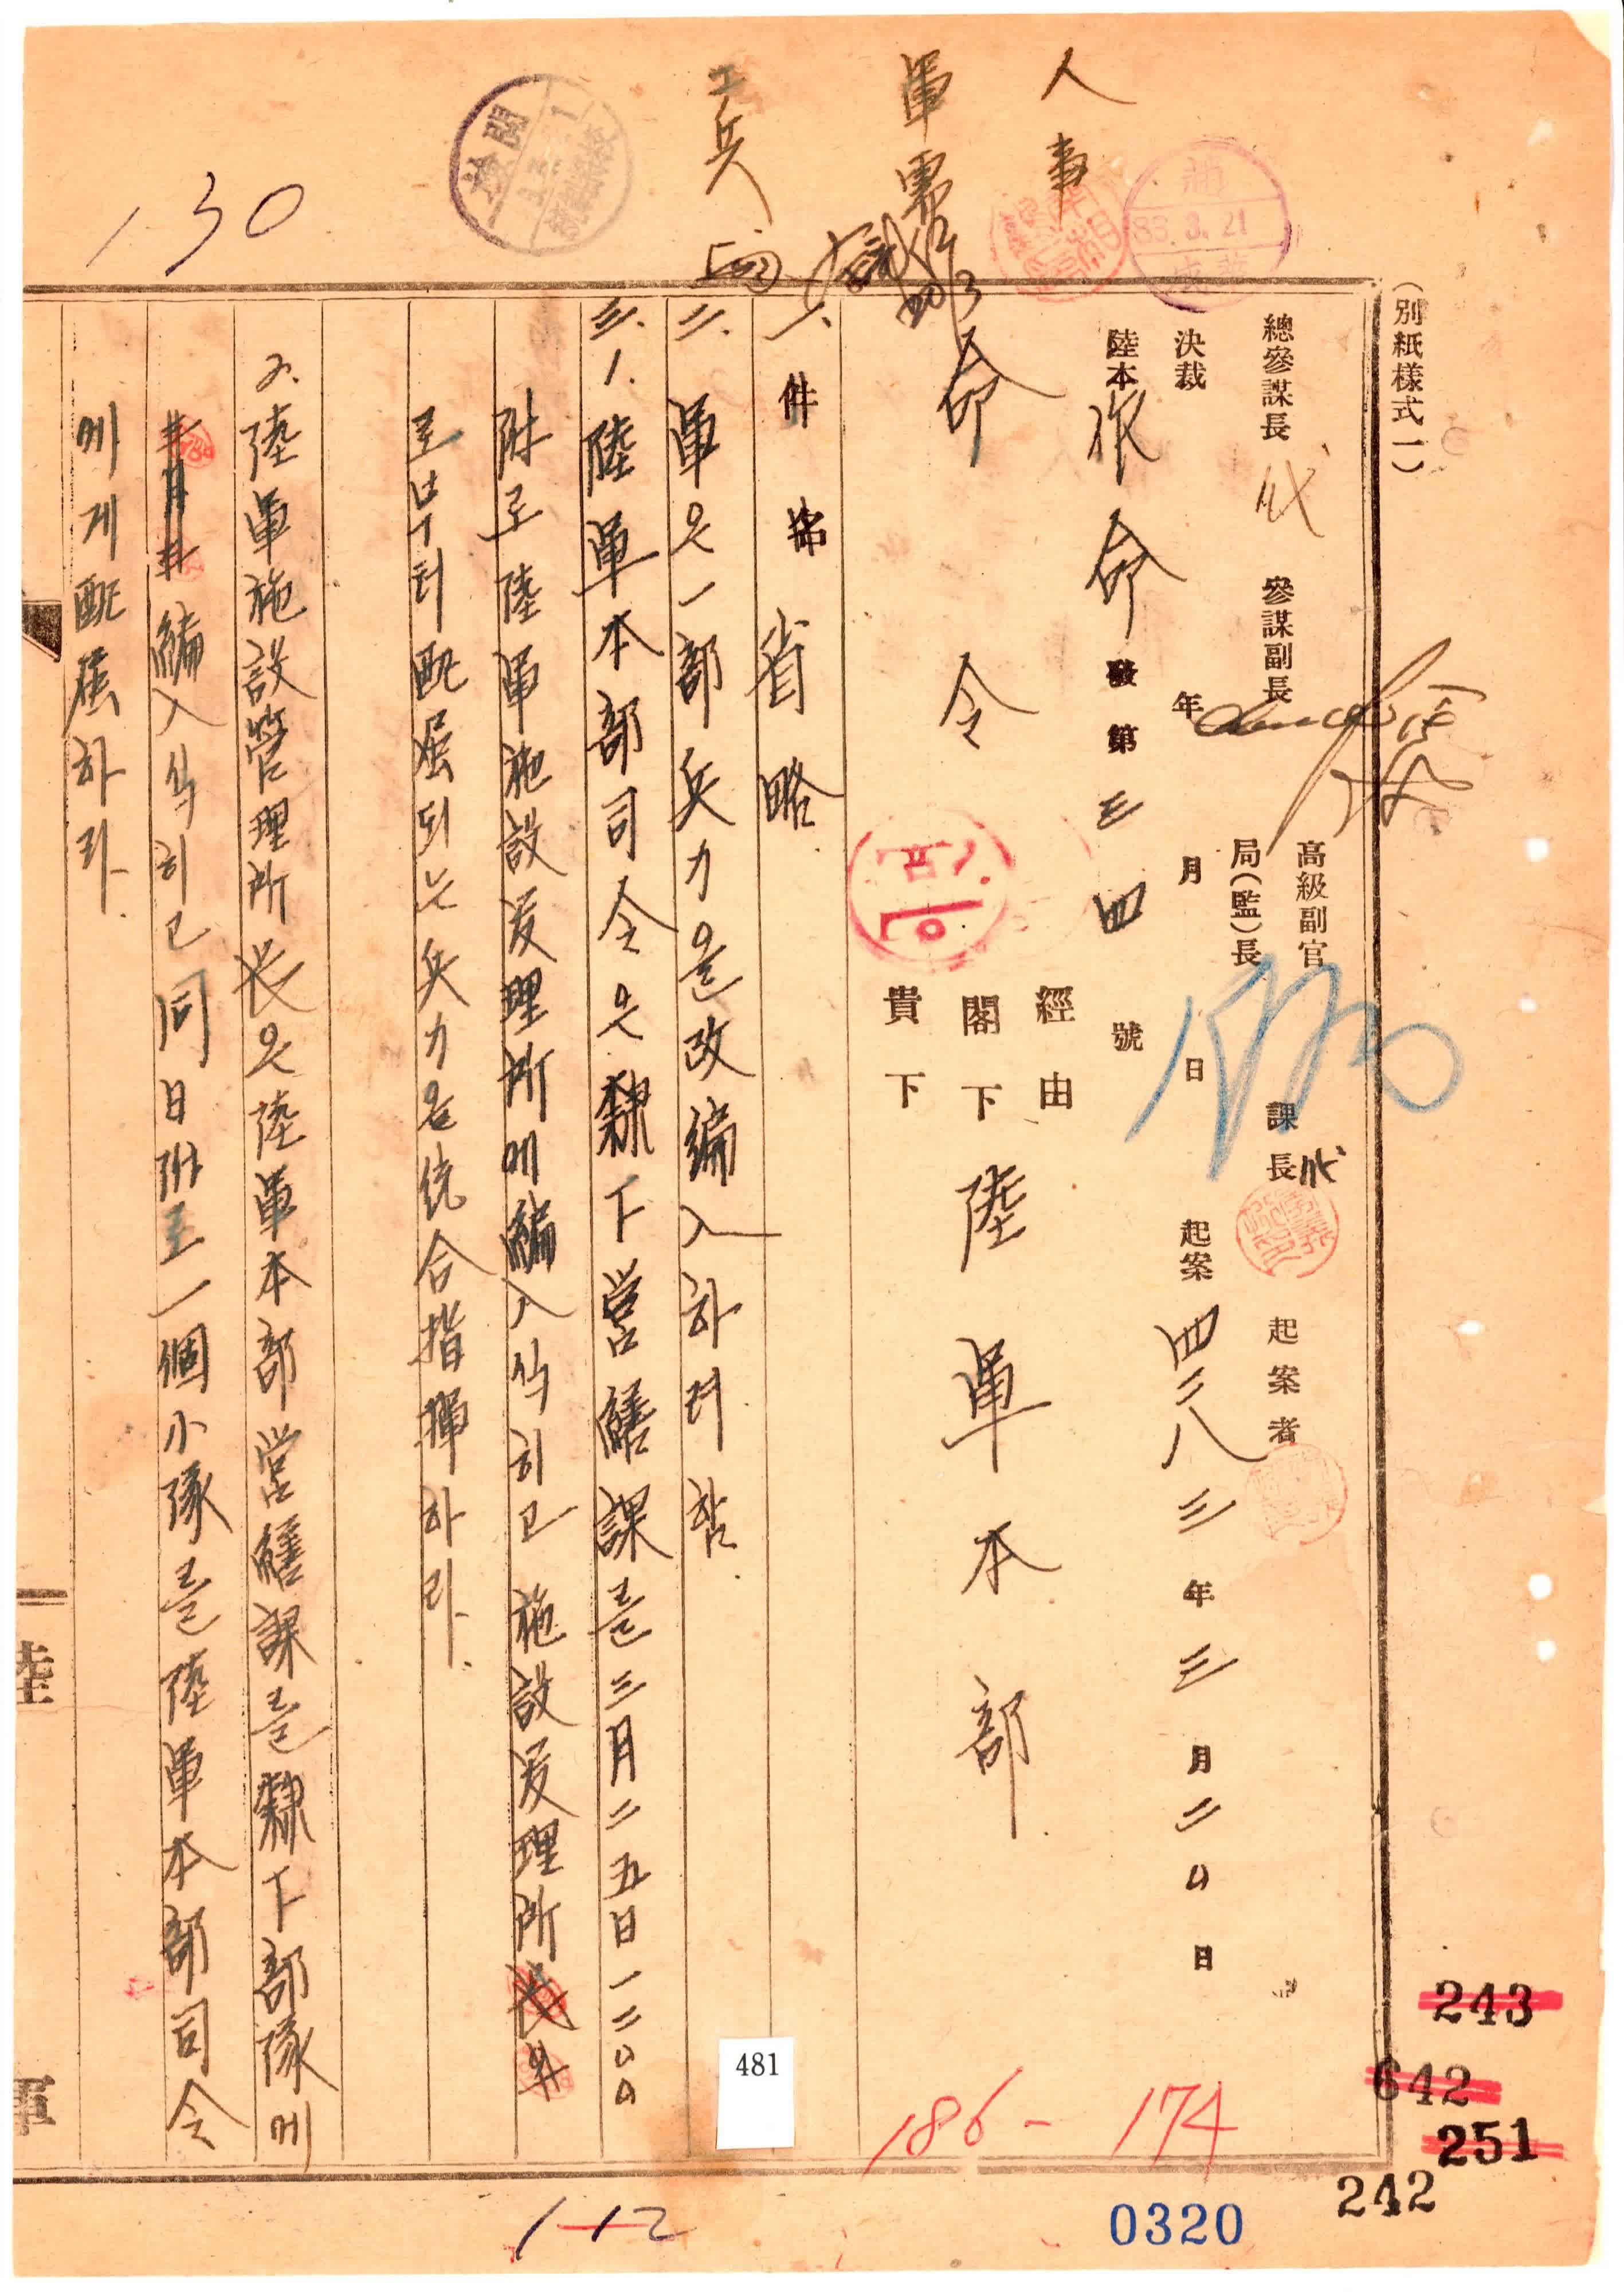 (別紙樣式一)
總參謀長 代 參謀副長 高級副官
局(監)長 課長 代 起案者
決裁 年 月 日 起案 四二八三年三月二〇日
陸本作命發第三四號
經由
命令 閣下 陸軍本部
貴下
人事
軍需
工兵
檢閱
83.3.21
130
一、件名 省略
二. 軍은一部兵力을改編入하려함.
三. 1. 陸軍本部司令은隸下營繕課를三月二五日一二〇〇
附로陸軍施設管理所에編入식히고施設管理所
로부터配屬되는兵力을統合指揮하라.
2. 陸軍施設管理所長은陸軍本部營繕課를隸下部隊에
編入식히고同日附로一個小隊를陸軍本部司令
에게配屬하라.
陸
軍
481
186-174
112
0320
243
642
251
242